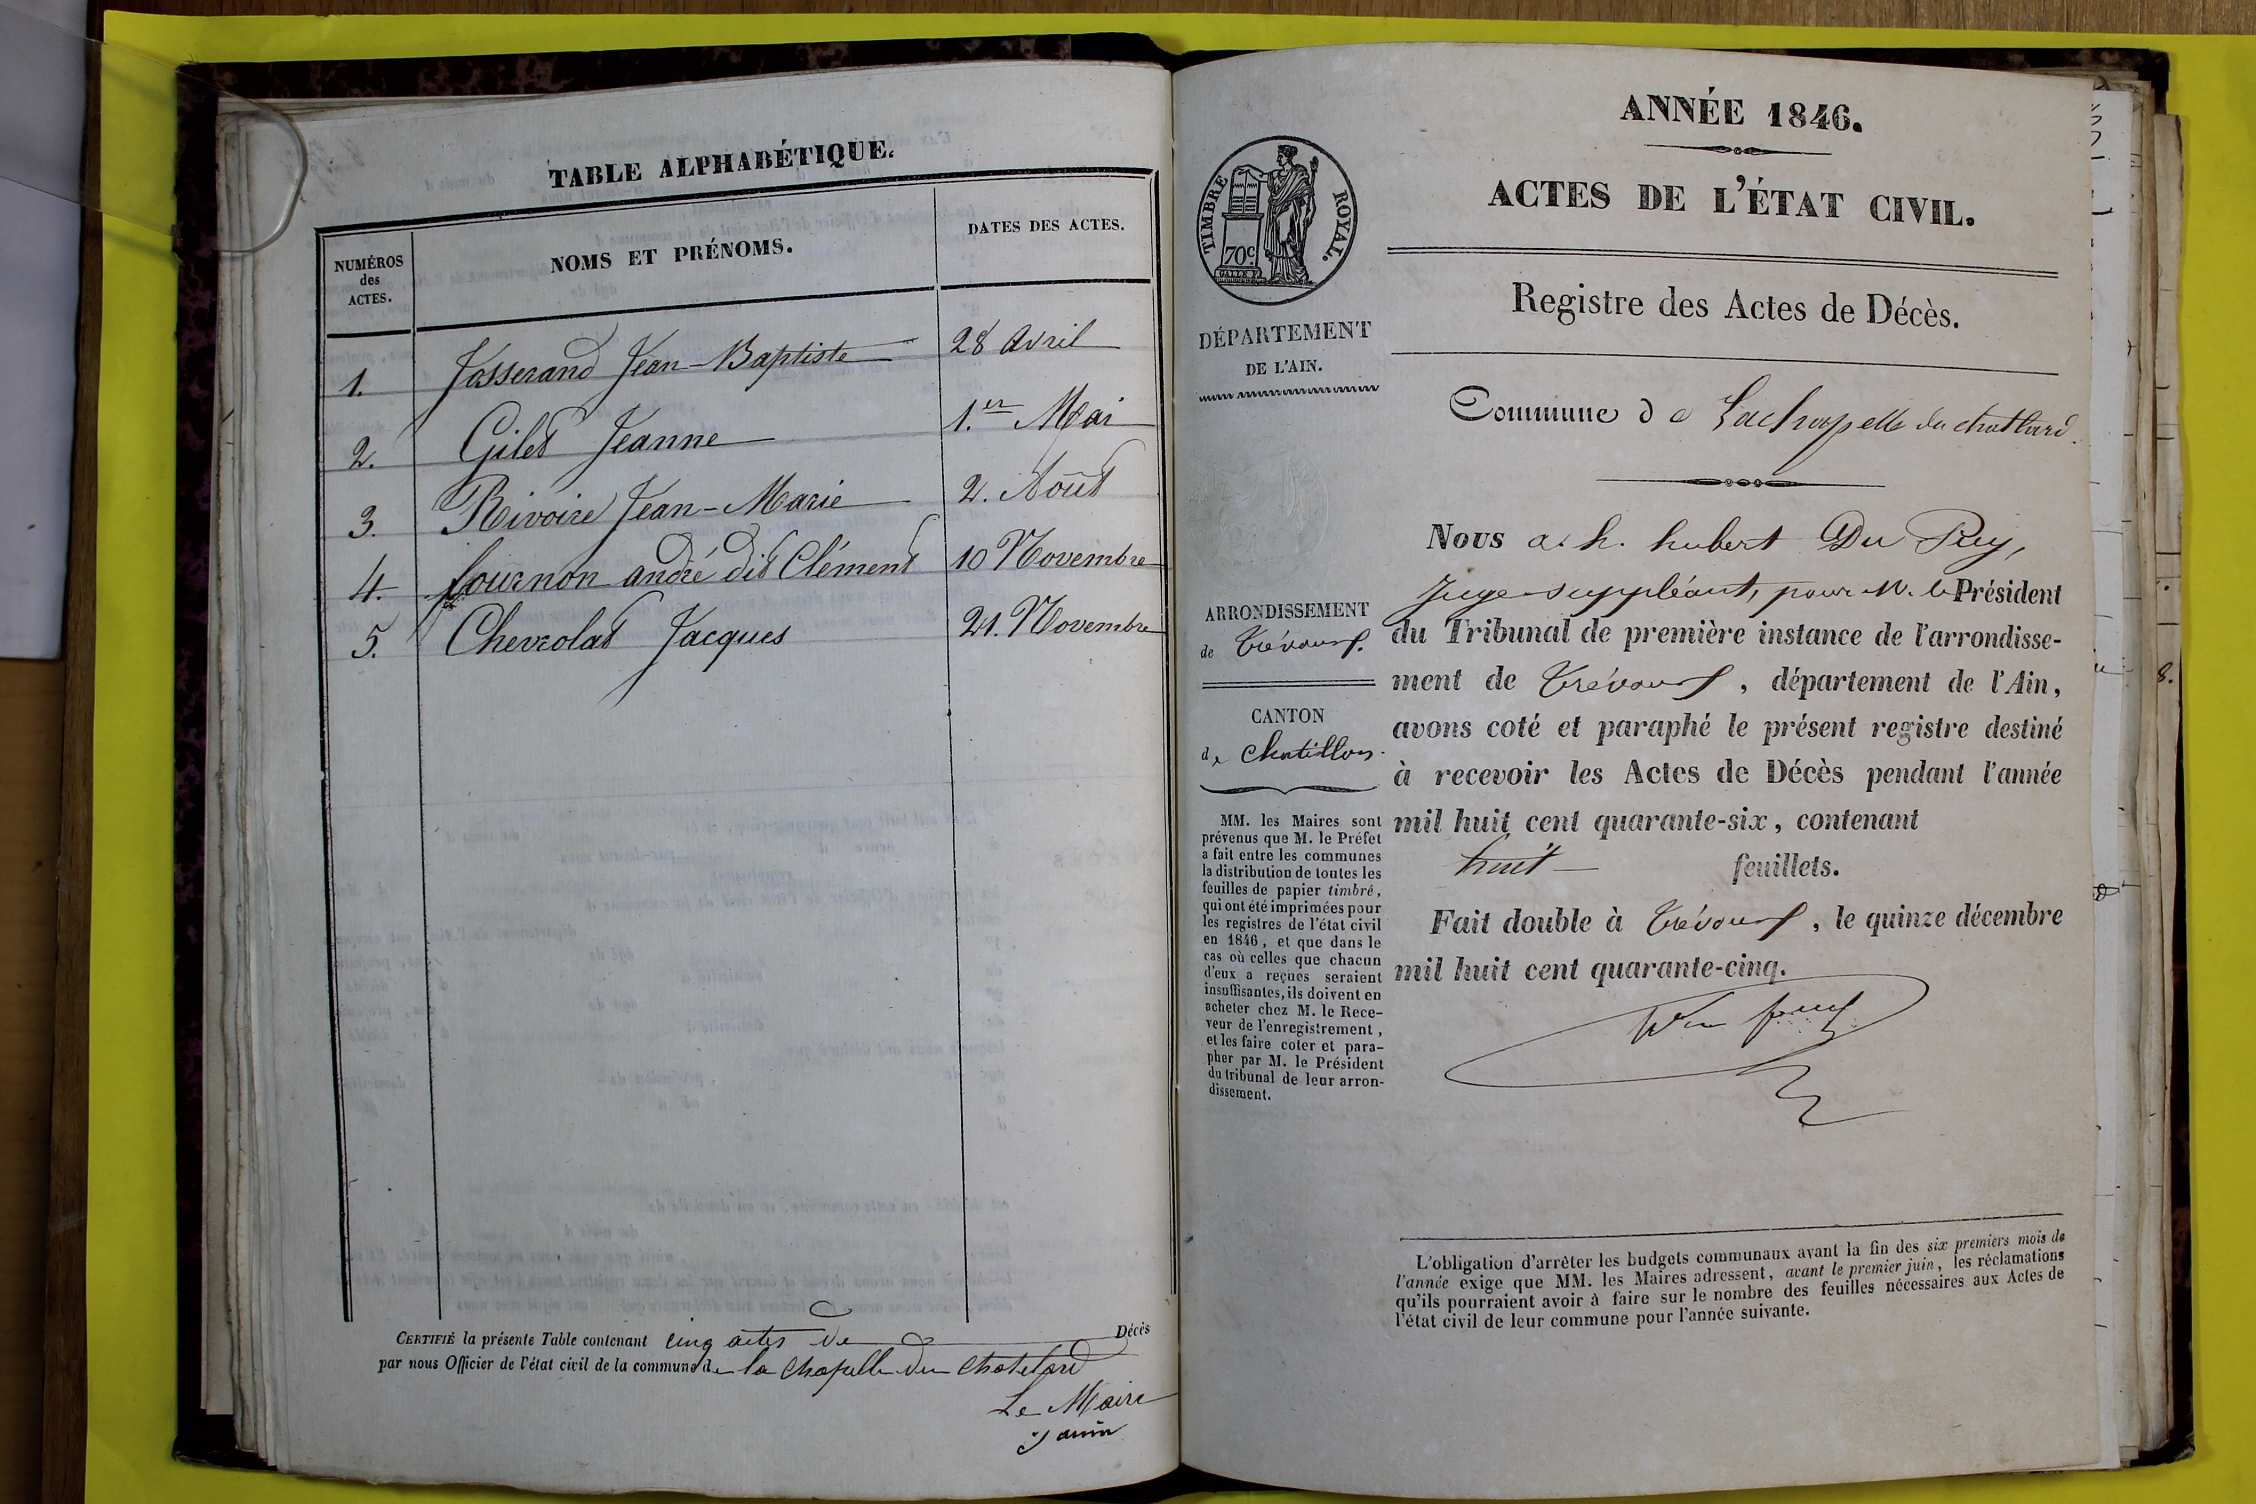 TABLE ALPHABÉTIQUE.
NUMÉROS
des
ACTES.
NOMS ET PRÉNOMS.
DATES DES ACTES.
1. Josserand Jean-Baptiste 28 Avril
2. Gilet Jeanne 1.er Mai
3. Rivoire Jean-Marie 2. Août
4. fournon andré dit Clément 10 Novembre
5. Chevrolat Jacques 21. Novembre
CERTIFIÉ la présente Table contenant cinq actes de Décès
par nous Officier de l'état civil de la commune de la chapelle du chatelard
Le Maire
Janin
ANNÉE 1846.
ACTES DE L'ÉTAT CIVIL.
Registre des Actes de Décès.
TIMBRE ROYAL.
70c
DÉPARTEMENT
DE L'AIN.
Commune de Lachapelle du chatelard.
ARRONDISSEMENT
de Trévoux.
CANTON
de chatillon.
MM. les Maires sont
prévenus que M. le Préfet
a fait entre les communes
la distribution de toutes les
feuilles de papier timbré,
qui ont été imprimées pour
les registres de l'état civil
en 1846, et que dans le
cas où celles que chacun
d'eux a reçues seraient
insuffisantes, ils doivent en
acheter chez M. le Rece-
veur de l'enregistrement,
et les faire coter et para-
pher par M. le Président
du tribunal de leur arron-
dissement.
Nous a. h. hubert Du Puy,
Juge-suppléant, pour M. le Président
du Tribunal de première instance de l'arrondisse-
ment de Trévoux, département de l'Ain,
avons coté et paraphé le présent registre destiné
à recevoir les Actes de Décès pendant l'année
mil huit cent quarante-six, contenant
huit feuillets.
Fait double à Trévoux, le quinze décembre
mil huit cent quarante-cinq.
L'obligation d'arrêter les budgets communaux avant la fin des six premiers mois de
l'année exige que MM. les Maires adressent, avant le premier juin, les réclamations
qu'ils pourraient avoir à faire sur le nombre des feuilles nécessaires aux Actes de
l'état civil de leur commune pour l'année suivante.
8.